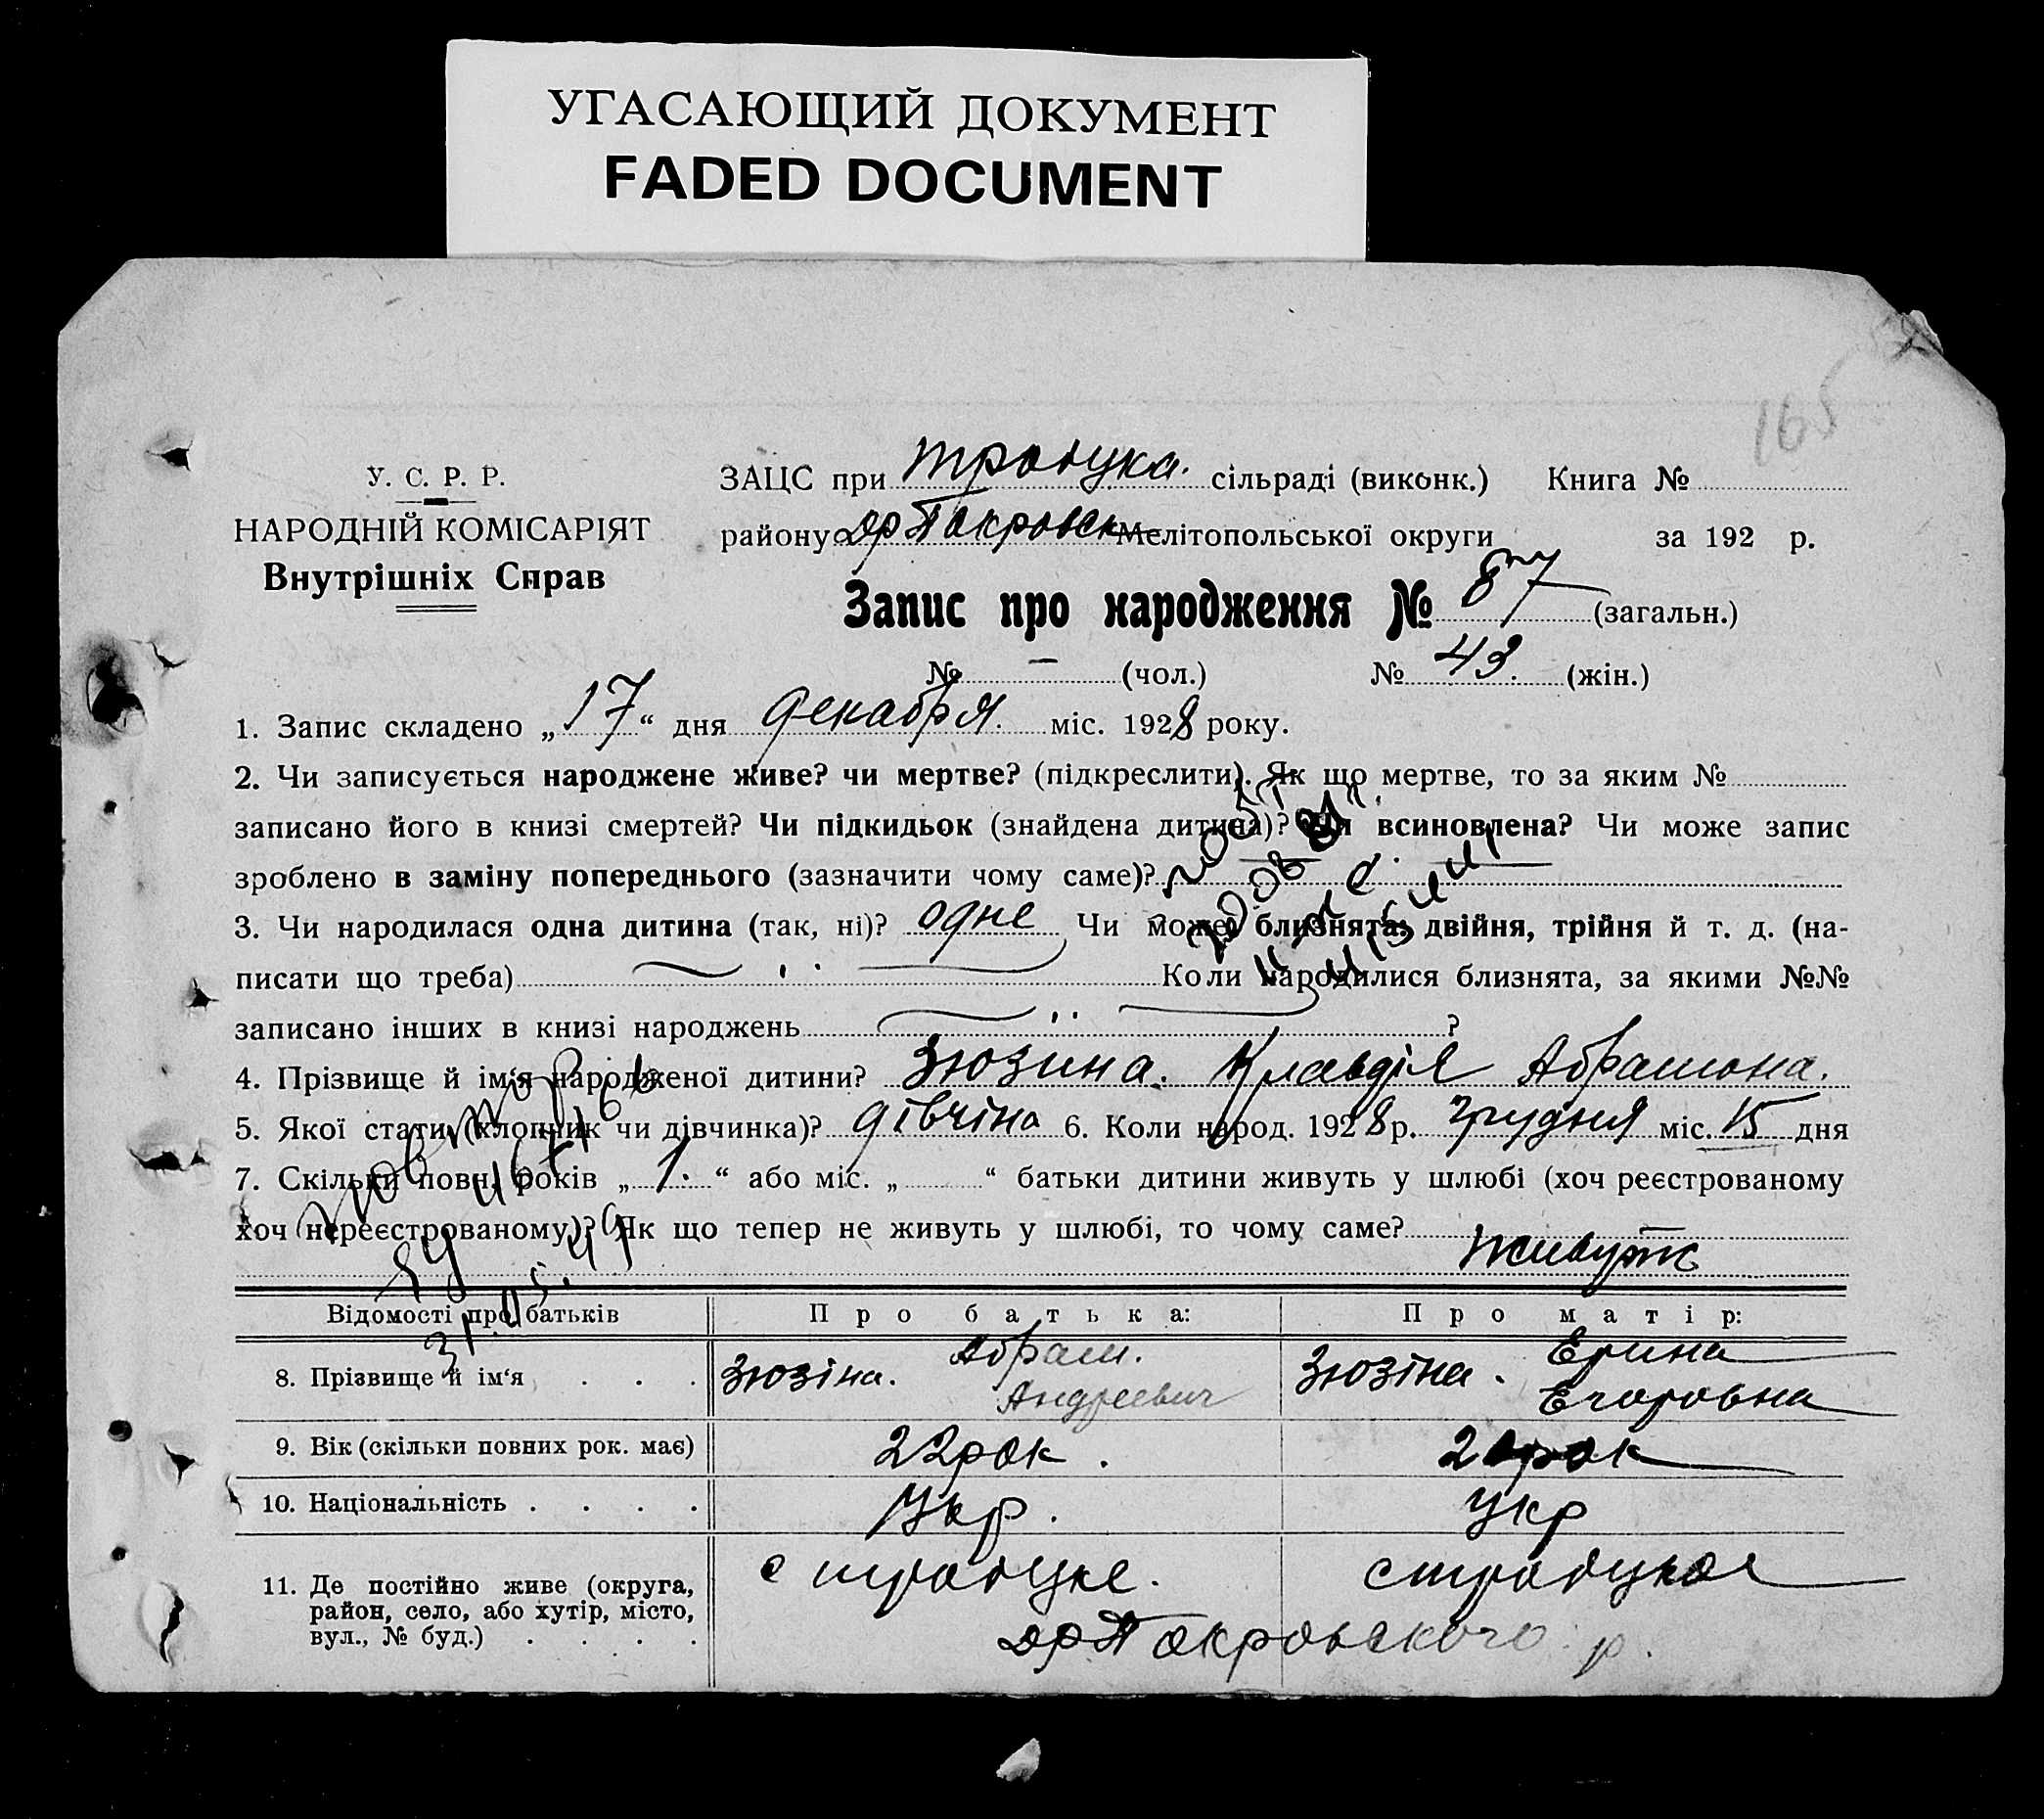 УГАСАЮЩИЙ ДОКУМЕНТ
FADED DOCUMENT
165
У. С. Р. Р.
НАРОДНІЙ КОМІСАРІЯТ
Внутрішніх Справ
ЗАЦС при сільраді (виконк.) Книга №
району Мелітопольської округи за 192 р.
Запис про народження № 87 (загальн.)
№ — (чол.) № 43. (жін.)
1. Запис складено „17“ дня декабря. міс. 1928 року.
2. Чи записується народжене живе? чи мертве? (підкреслити). Як що мертве, то за яким №
записано його в книзі смертей? Чи підкидьок (знайдена дитина)? Чи всиновлена? Чи може запис
зроблено в заміну попереднього (зазначити чому саме)?
3. Чи народилася одна дитина (так, ні)? одне Чи може близнята: двійня, трійня й т. д. (на-
писати що треба) Коли народилися близнята, за якими №№
записано інших в книзі народжень ?
4. Прізвище й ім‘я народженої дитини? Зюзина. Клавдія Абрамона.
5. Якої стати (хлопчик чи дівчинка)? дівчіна 6. Коли народ. 1928 р. Грудня міс. 15 дня
7. Скільки повн. років „1.“ або міс. „ “ батьки дитини живуть у шлюбі (хоч реєстрованому
хоч нереєстрованому)? Як що тепер не живуть у шлюбі, то чому саме?
живуть
Відомості про батьків Про батька: Про матір:
8. Прізвище й ім‘я . . . Зюзіна. Абрам. Андреевич Зюзіна. Ерина Егоровна
9. Вік (скільки повних рок. має) 22 рок. рок
10. Національність . . . . Укр. Укр
11. Де постійно живе (округа,
район, село, або хутір, місто,
вул., № буд.) . . . .